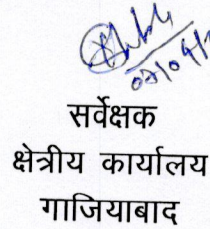 सर्वेक्षक
क्षेत्रीय कार्यालय
गाजियाबाद